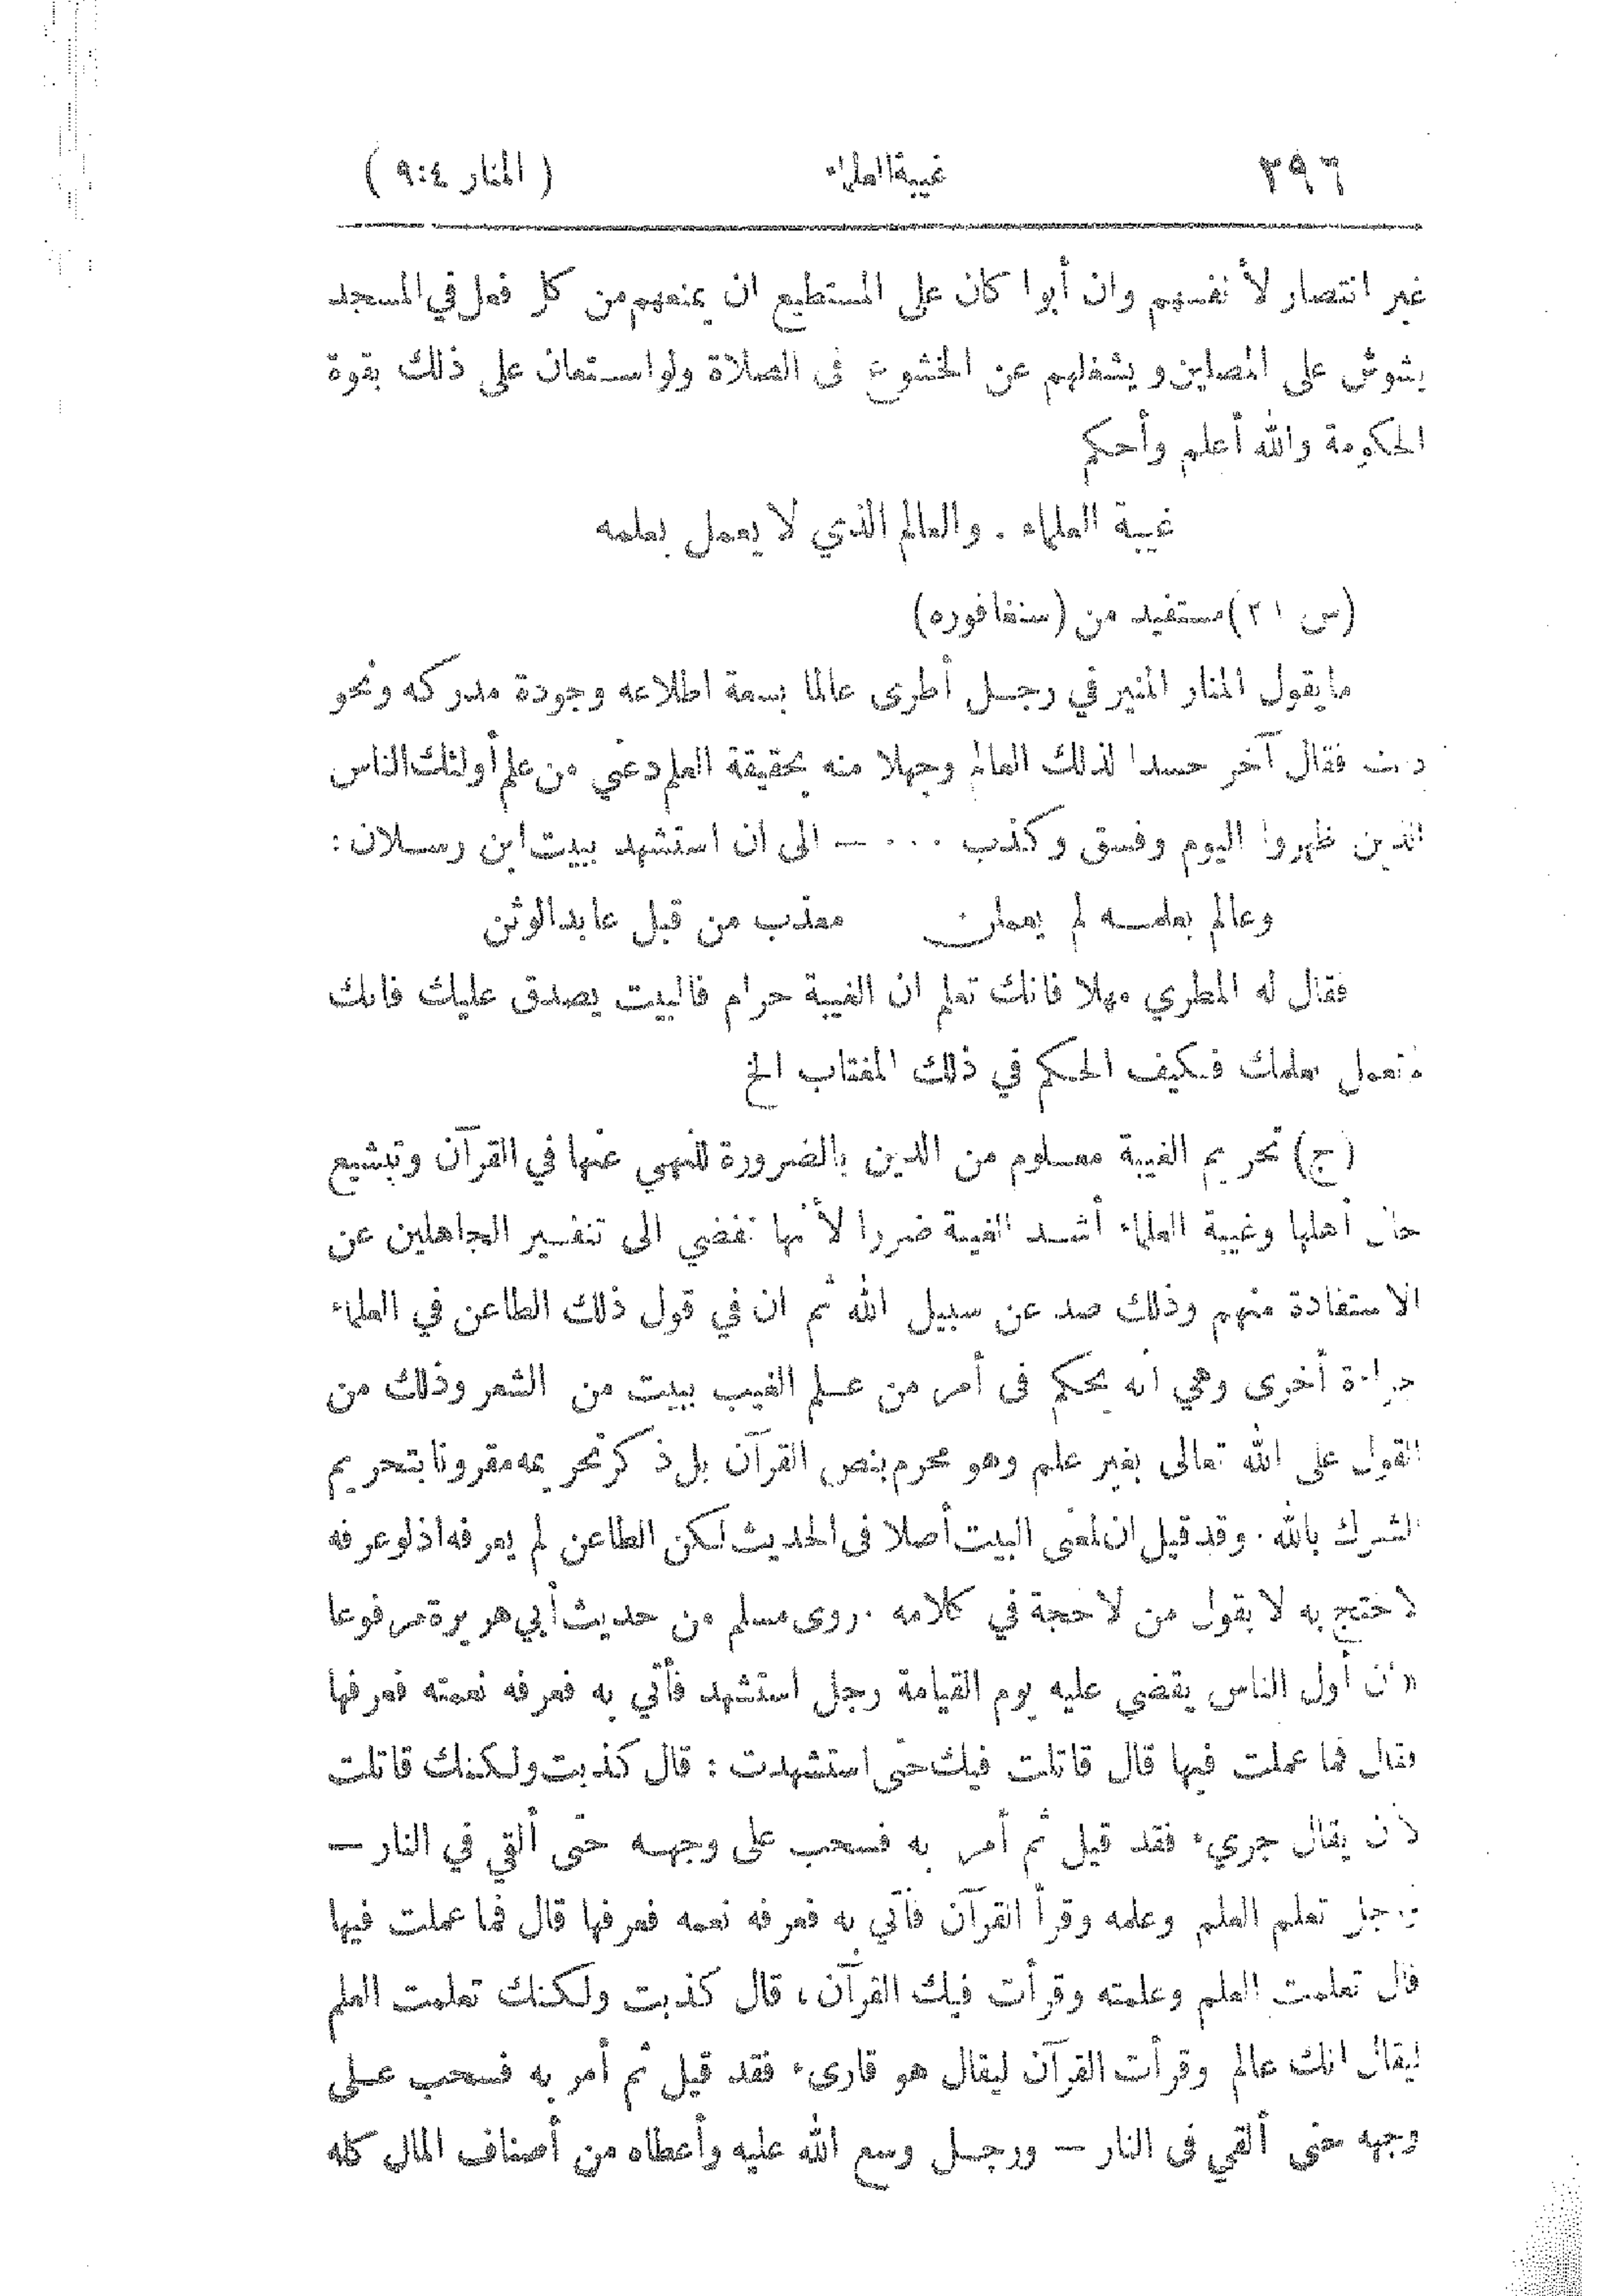 ٢٩٦ غيبة العلماء ( المنار ٤ : ٩ )
غير انتصار لأنفسهم وان أبوا كان على المستطيع ان يمنعهم من كل فعل في المسجد
يشوش على المصلين ويشغلهم عن الخشوع في الصلاة ولو استعان على ذلك بقوة
الحكومة والله أعلم وأحكم
غيبة العلماء . والعالم الذي لا يعمل بعلمه
(س ٢١) مستفيد من (سنغافوره)
ما يقول المنار المنير في رجل أطرى عالما بسعة اطلاعه وجودة مدركه ونحو
فقال آخر حسدا لذلك العالم وجهلا منه بحقيقة العلم دعني من علم أولئك الناس
الذين ظهروا اليوم وفسق وكذب . . . — الى ان استشهد ببيت ابن رسلان :
وعالم بعلمه لم يعملن معذب من قبل عابد الوثن
فقال له المطري مهلا فانك تعلم ان الغيبة حرام فالبيت يصدق عليك فانك
بعلمك فكيف الحكم في ذلك المغتاب الخ
(ج) تحريم الغيبة معلوم من الدين بالضرورة للنهي عنها في القرآن وتبشيع
حال أهلها وغيبة العلماء أشد الغيبة ضررا لأنها تفضي الى تنفير الجاهلين عن
الاستفادة منهم وذلك صد عن سبيل الله ثم ان في قول ذلك الطاعن في العلماء
جراءة أخرى وهي انه يحكم في أمر من علم الغيب ببيت من الشعر وذلك من
القول على الله تعالى بغير علم وهو محرم بنص القرآن بل ذكر تحريمه مقرونا بتحريم
الشرك بالله . وقد قيل ان لمعنى البيت أصلا في الحديث لكن الطاعن لم يعرفه اذ لو عرفه
لاحتج به لا بقول من لا حجة في كلامه . روى مسلم من حديث أبي هريرة مرفوعا
«ان أول الناس يقضى عليه يوم القيامة رجل استشهد فأتي به فعرفه نعمته فعرفها
فقال فما عملت فيها قال قاتلت فيك حتى استشهدت : قال كذبت ولكنك قاتلت
لأن يقال جريء فقد قيل ثم أمر به فسحب على وجهه حتى ألقي في النار —
ورجل تعلم العلم وعلمه وقرأ القرآن فأتي به فعرفه نعمه فعرفها قال فما عملت فيها
قال تعلمت العلم وعلمته وقرأت فيك القرآن ، قال كذبت ولكنك تعلمت العلم
ليقال انك عالم وقرأت القرآن ليقال هو قارئ فقد قيل ثم أمر به فسحب على
وجهه حتى ألقي في النار — ورجل وسع الله عليه وأعطاه من أصناف المال كله